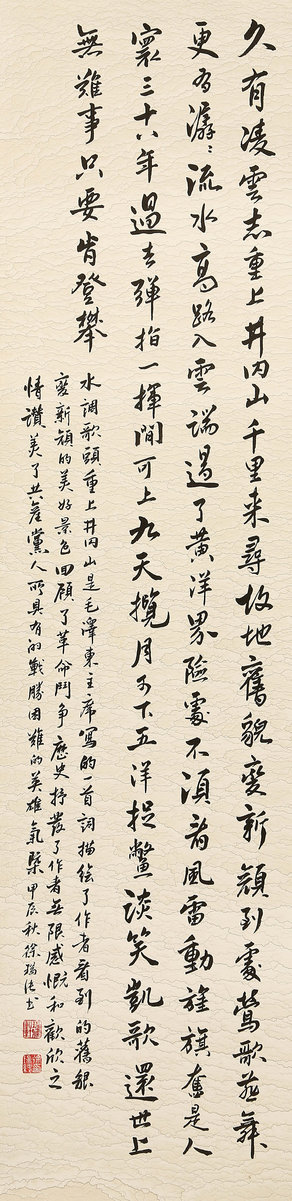 久有凌雲志重上井冈山千里来尋故地舊貌變新顔到處鶯歌燕舞
更有潺潺流水高路入雲端過了黄洋界險處不須看風雷動旌旗奮是人
寰三十八年過去彈指一揮間可上九天攬月可下五洋捉鱉談笑凱歌還世上
無難事只要肯登攀
水調歌頭重上井冈山是毛澤東主席寫的一首詞描绘了作者看到的舊貌
變新顔的美好景色回顧了革命鬥争歷史抒發了作者無限感慨和歡欣之
情讚美了共產黨人所具有的戰勝困難的英雄氣槩甲辰秋徐書